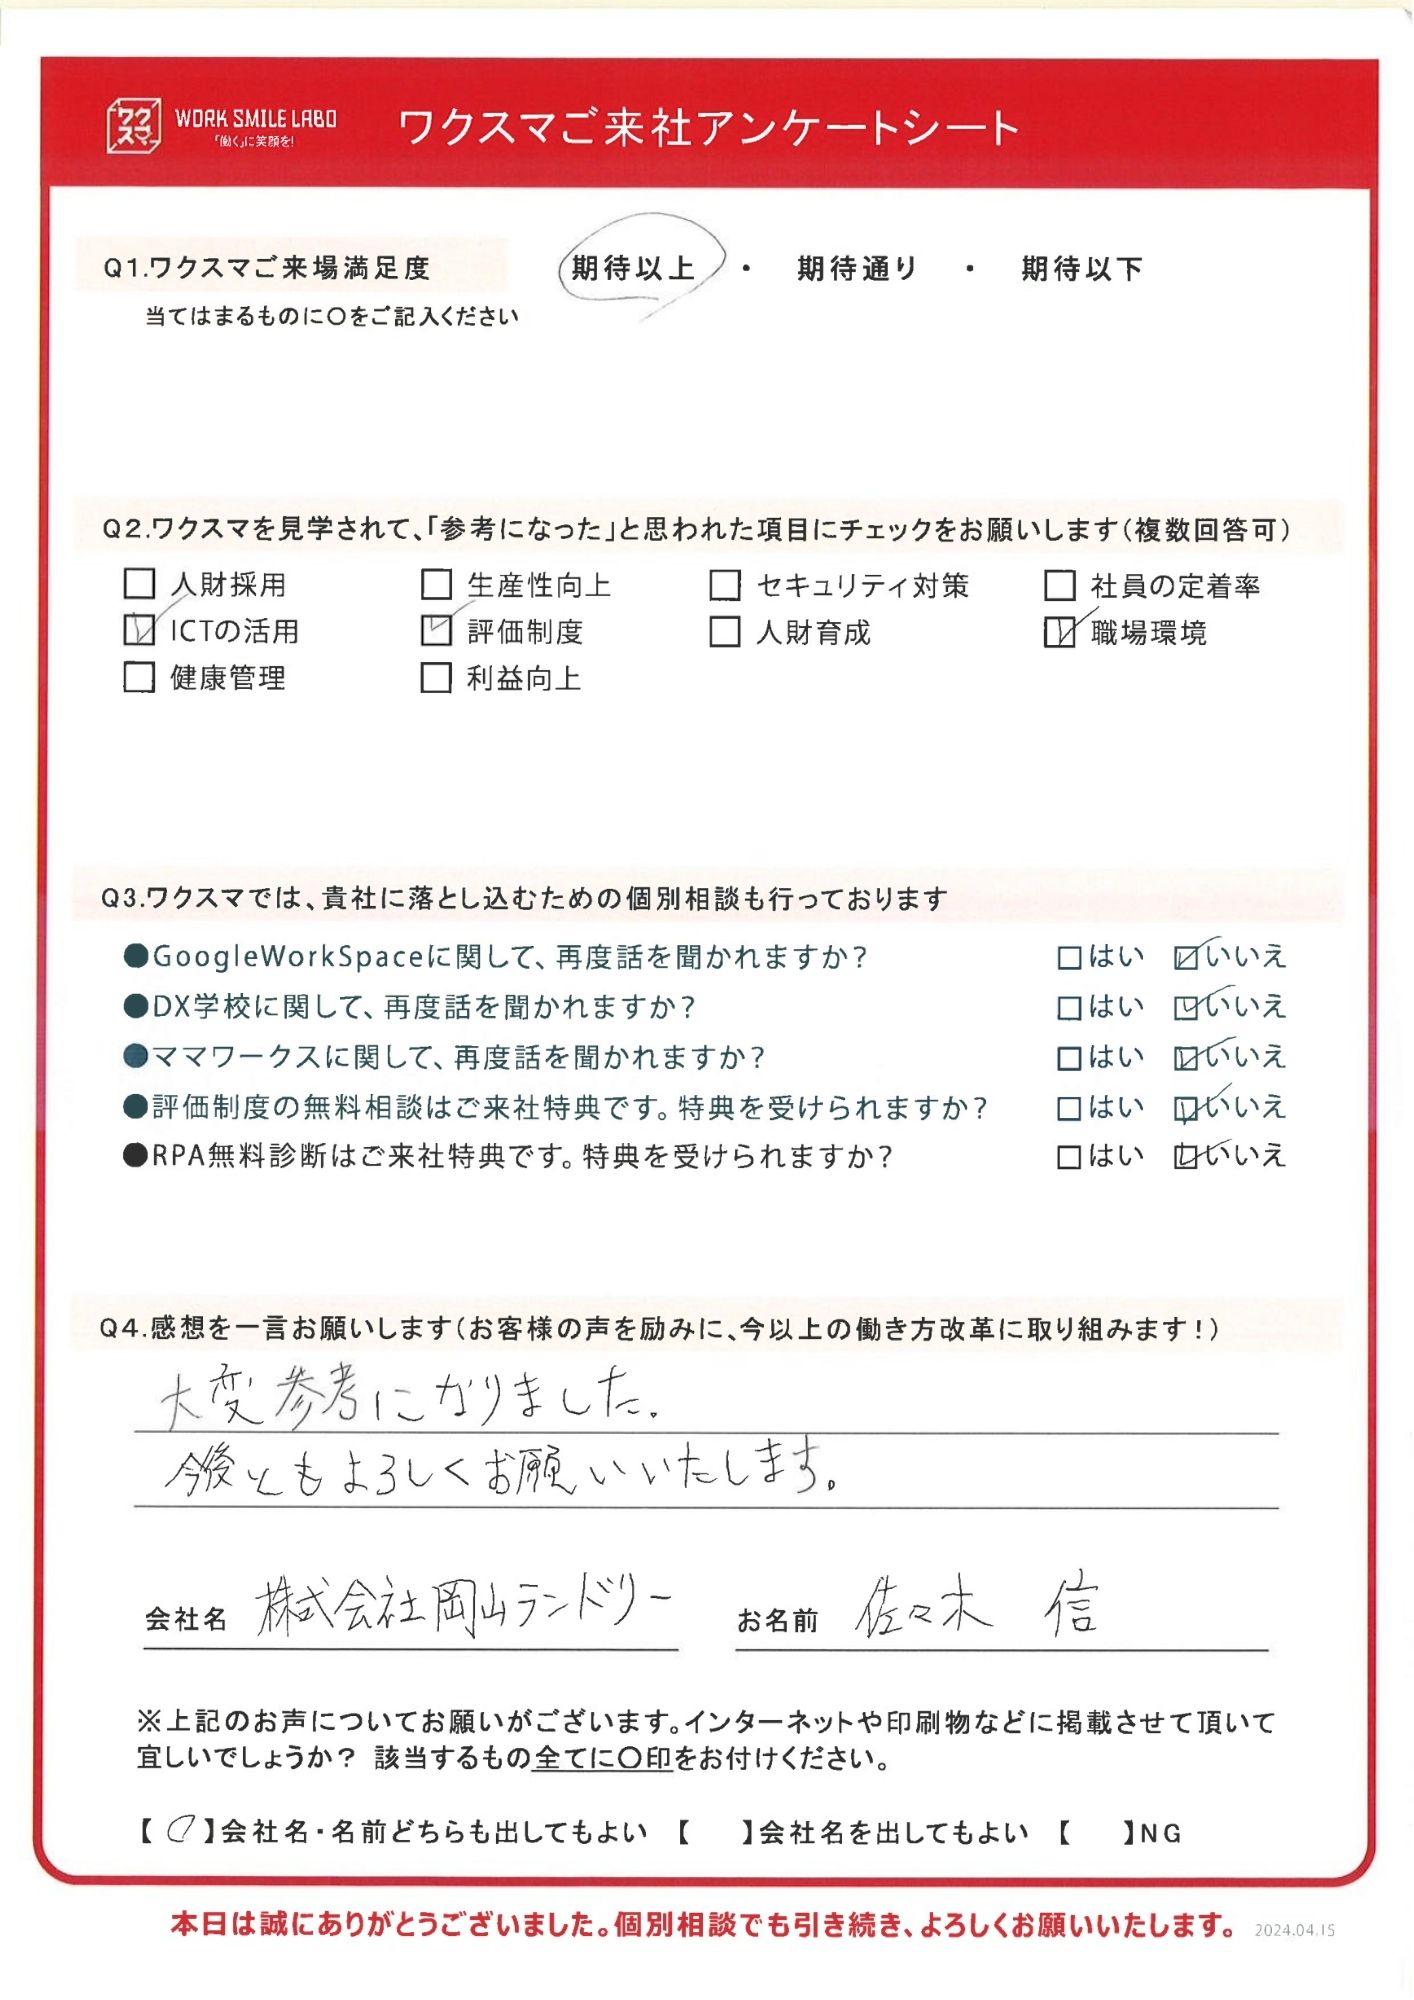 ワクスマ WORK SMILE LABO 「働く」に笑顔を! ワクスマご来社アンケートシート
Q1.ワクスマご来場満足度 期待以上 ・ 期待通り ・ 期待以下
当てはまるものに〇をご記入ください
Q2.ワクスマを見学されて、「参考になった」と思われた項目にチェックをお願いします(複数回答可)
□ 人財採用 □ 生産性向上 □ セキュリティ対策 □ 社員の定着率
☑ ICTの活用 ☑ 評価制度 □ 人財育成 ☑ 職場環境
□ 健康管理 □ 利益向上
Q3.ワクスマでは、貴社に落とし込むための個別相談も行っております
●GoogleWorkSpaceに関して、再度話を聞かれますか? □はい ☑いいえ
●DX学校に関して、再度話を聞かれますか? □はい ☑いいえ
●ママワークスに関して、再度話を聞かれますか? □はい ☑いいえ
●評価制度の無料相談はご来社特典です。特典を受けられますか? □はい ☑いいえ
●RPA無料診断はご来社特典です。特典を受けられますか? □はい ☑いいえ
Q4.感想を一言お願いします(お客様の声を励みに、今以上の働き方改革に取り組みます!)
大変参考になりました.
今後ともよろしくお願いいたします。
会社名 株式会社岡山ランドリー お名前 佐々木 信
※上記のお声についてお願いがございます。インターネットや印刷物などに掲載させて頂いて
宜しいでしょうか? 該当するもの全てに〇印をお付けください。
【 〇 】会社名・名前どちらも出してもよい 【 】会社名を出してもよい 【 】NG
本日は誠にありがとうございました。個別相談でも引き続き、よろしくお願いいたします。 2024.04.15